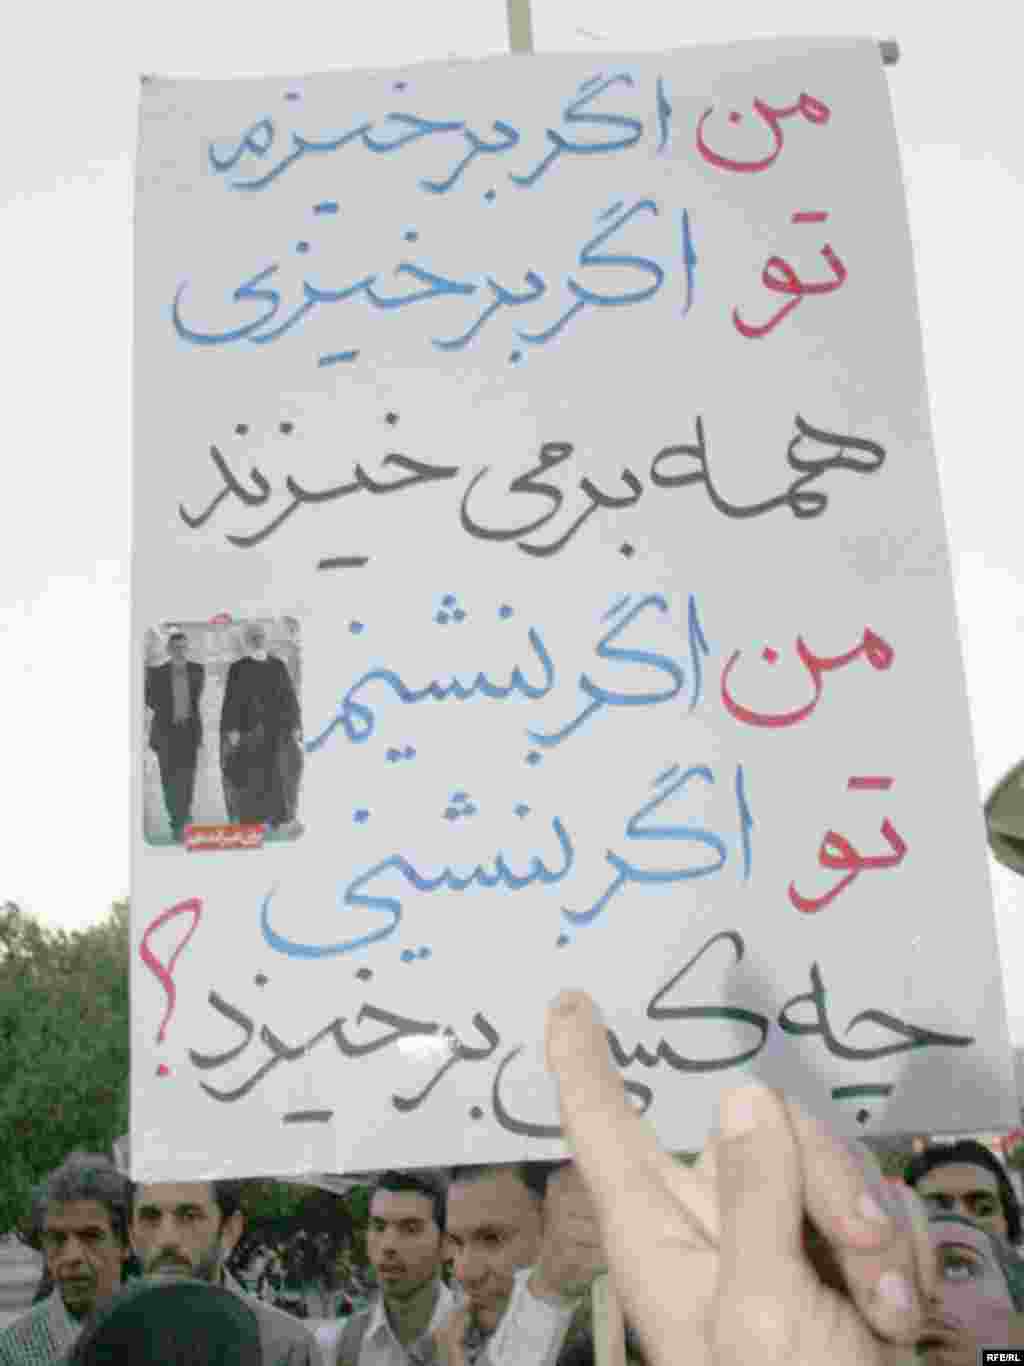 من اگر برخیزم
تو اگر برخیزی
همه برمی خیزند
من اگر بنشینم
تو اگر بنشینی
چه کسی برخیزد؟
RFE/RL